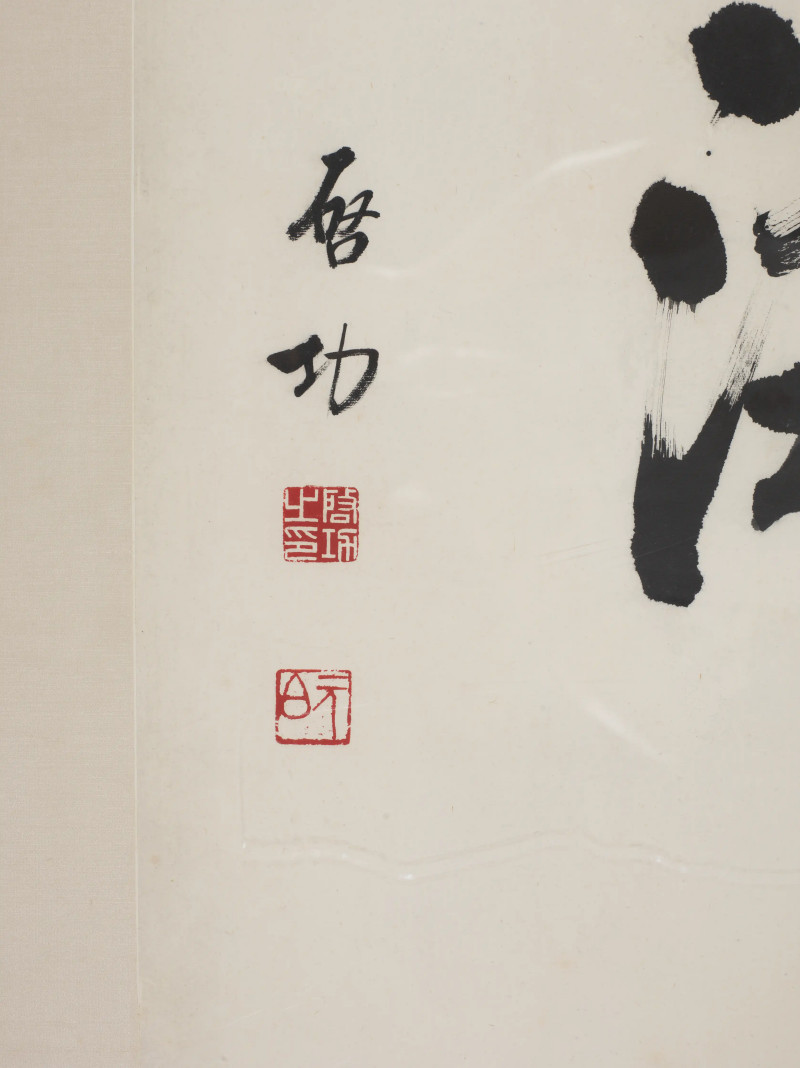 启功
啟功之印
元白